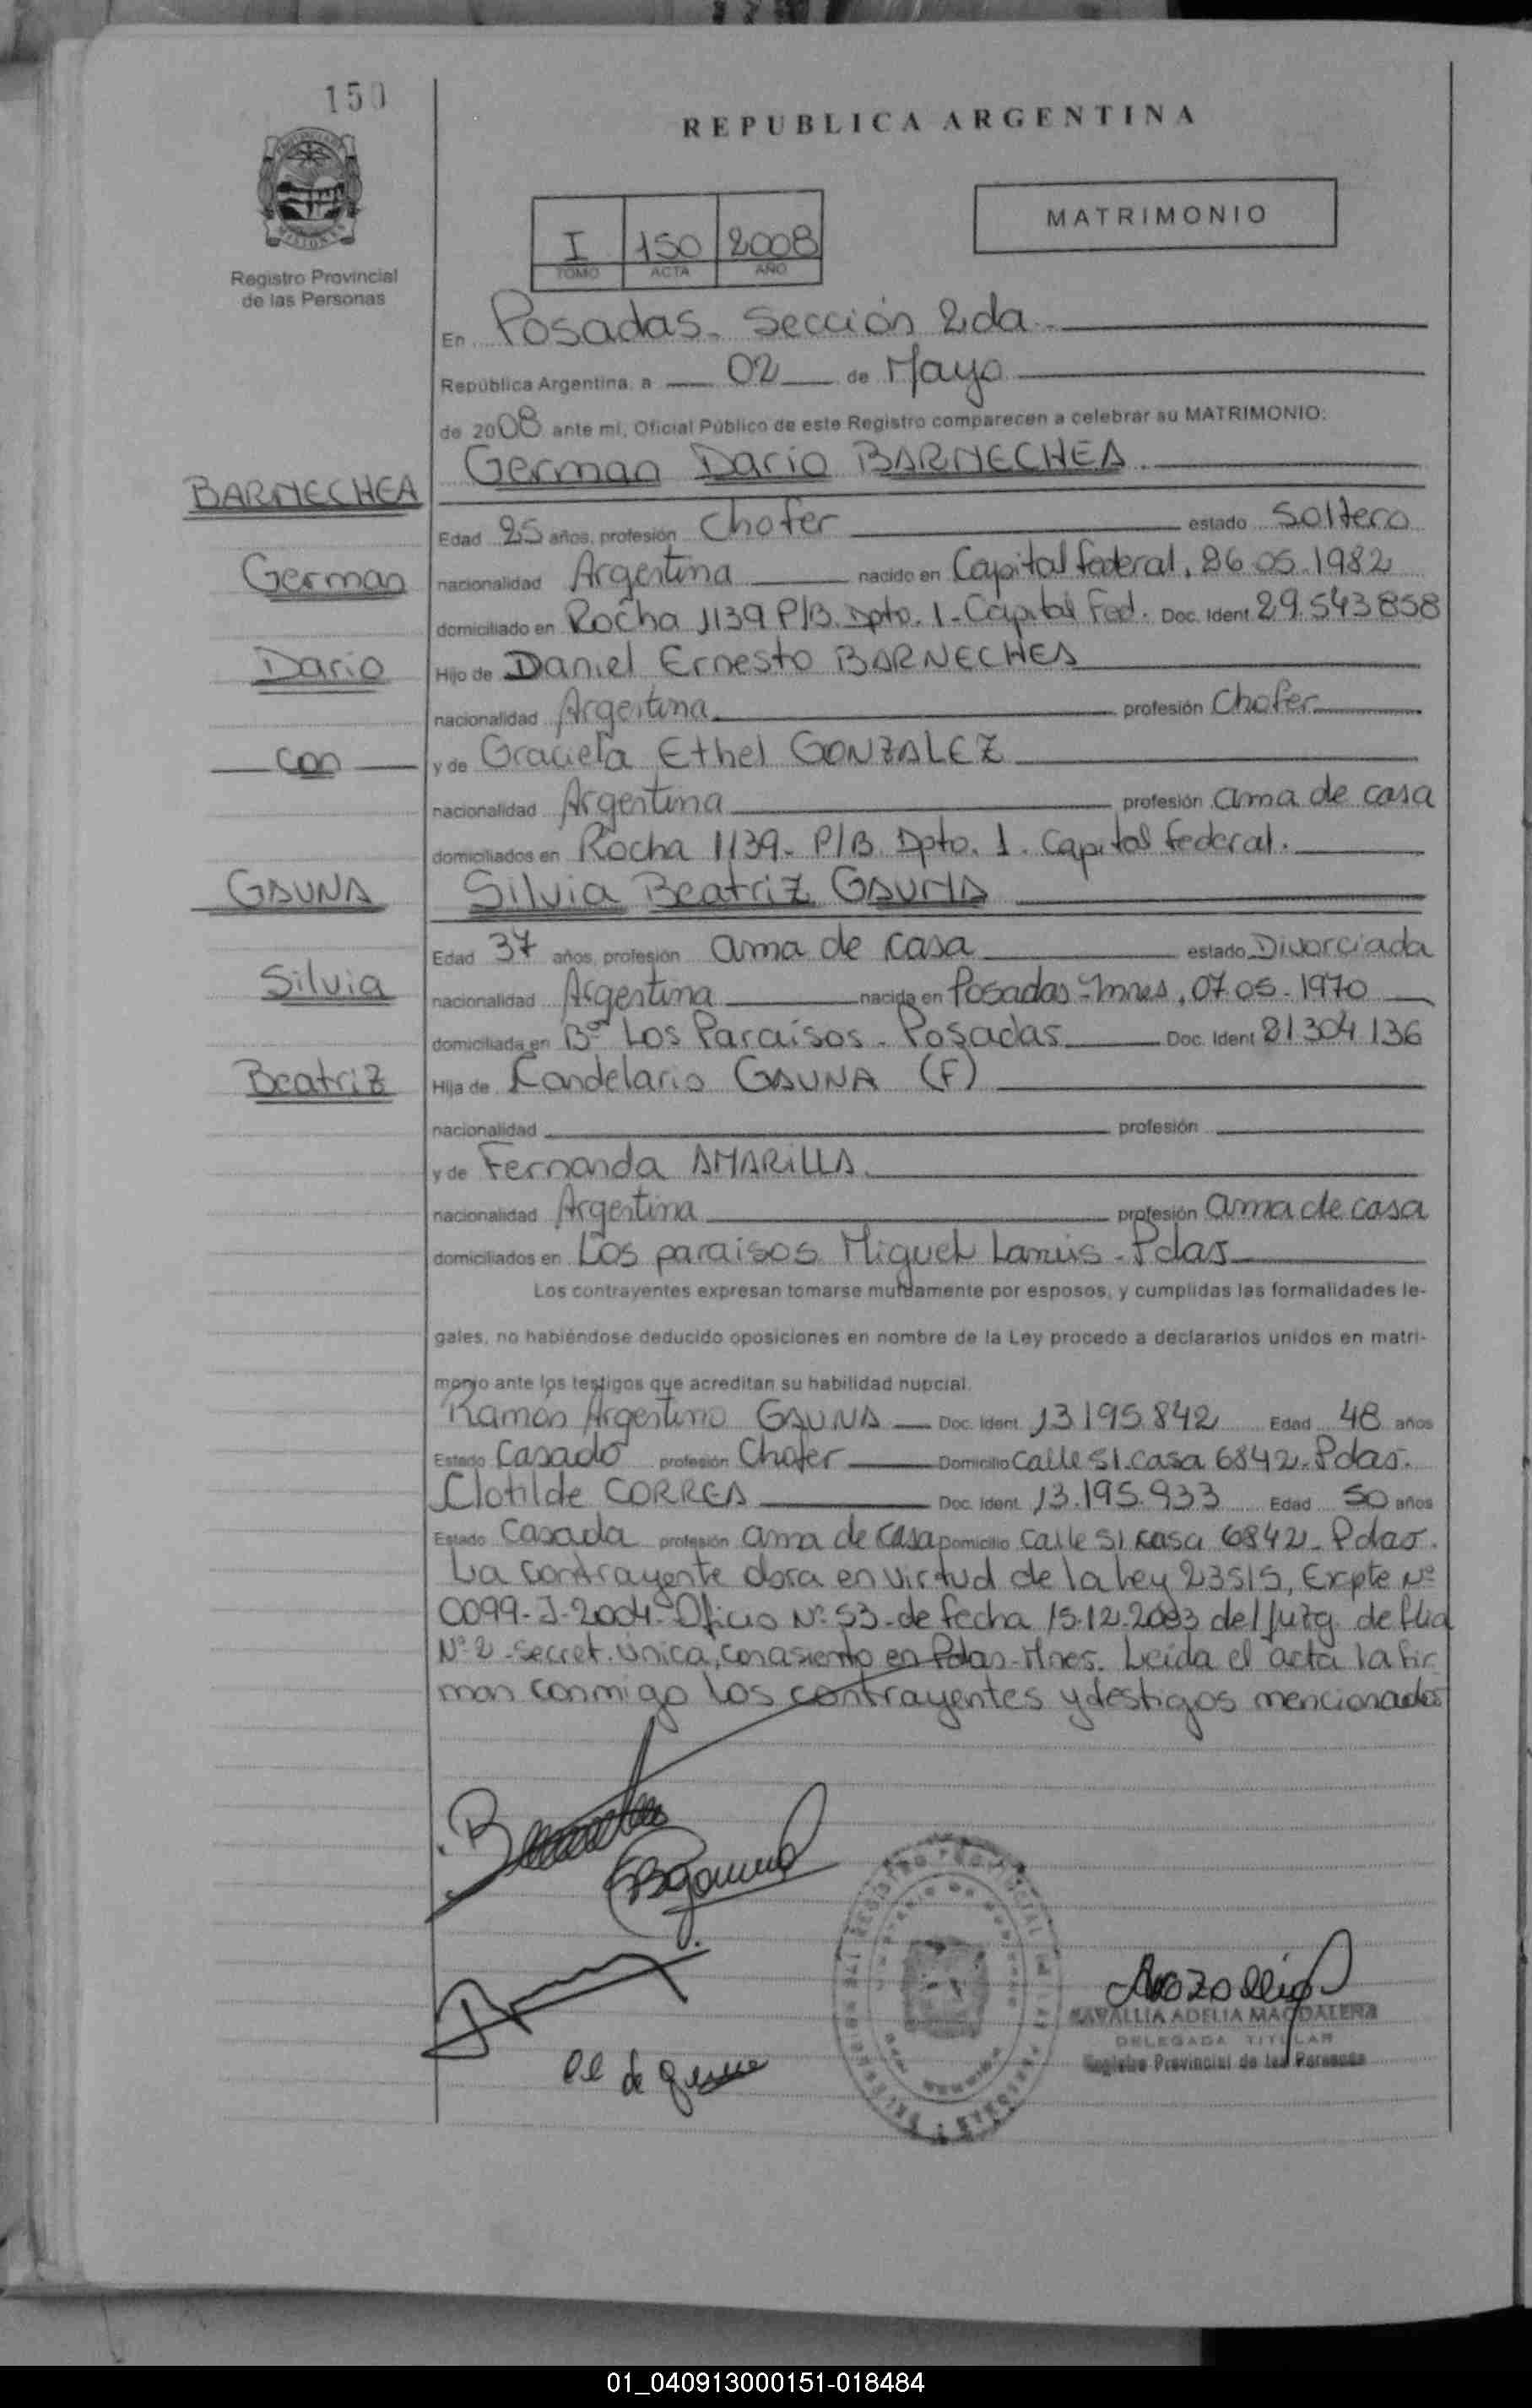 150
REPUBLICA ARGENTINA
MATRIMONIO
I 150 2008
TOMO ACTA AÑO
Registro Provincial
de las Personas
En Posadas - Sección 2da.
República Argentina, a 02 de Mayo
de 2008 ante mi, Oficial Público de este Registro comparecen a celebrar su MATRIMONIO:
German Dario BARNECHEA
BARNECHEA
Edad 25 años, profesión Chofer estado Soltero
German
nacionalidad Argentina nacido en Capital federal, 26.05.1982
domiciliado en Rocha 1139 P/B. Dpto. 1 - Capital Fed. Doc. Ident 29.543858
Dario
Hijo de Daniel Ernesto BARNECHEA
nacionalidad Argentina profesión Chofer
con
y de Graciela Ethel GONZALEZ
nacionalidad Argentina profesión ama de casa
domiciliados en Rocha 1139 - P/B. Dpto. 1. Capital federal.
GAUNA
Silvia Beatriz GAUNA
Edad 37 años, profesión ama de casa estado Divorciada
Silvia
nacionalidad Argentina nacida en Posadas - Mnes, 07.05.1970
domiciliada en Bº Los Paraisos - Posadas Doc. Ident 21304136
Beatriz
Hija de Candelario GAUNA (F)
nacionalidad profesión
y de Fernanda AMARILLA
nacionalidad Argentina profesión ama de casa
domiciliados en Los paraisos Miguel Lanús - Pdas
Los contrayentes expresan tomarse mutuamente por esposos, y cumplidas las formalidades le-
gales, no habiéndose deducido oposiciones en nombre de la Ley procedo a declararlos unidos en matri-
monio ante los testigos que acreditan su habilidad nupcial.
Ramón Argentino GAUNA Doc. Ident. 13195842 Edad 48 años
Estado Casado profesión Chofer Domicilio Calle 51 casa 6842 - Pdas.
Clotilde CORREA Doc. Ident. 13.195.933 Edad 50 años
Estado Casada profesión ama de casa Domicilio calle 51 casa 6842 - Pdas.
La contrayente dora en virtud de la ley 23515, Expte Nº
0099-J-2004- Oficio Nº 53 - de fecha 15.12.2003 del Juzg. de flia
Nº 2 - Secret. Unica, con asiento en Pdas - Mnes. Leida el acta la fir
man conmigo los contrayentes y testigos mencionados
REGISTRO PROVINCIAL DE LAS
SAVALLIA ADELIA MAGDALENA
DELEGADA TITULAR
Registro Provincial de las Personas
01_040913000151-018484